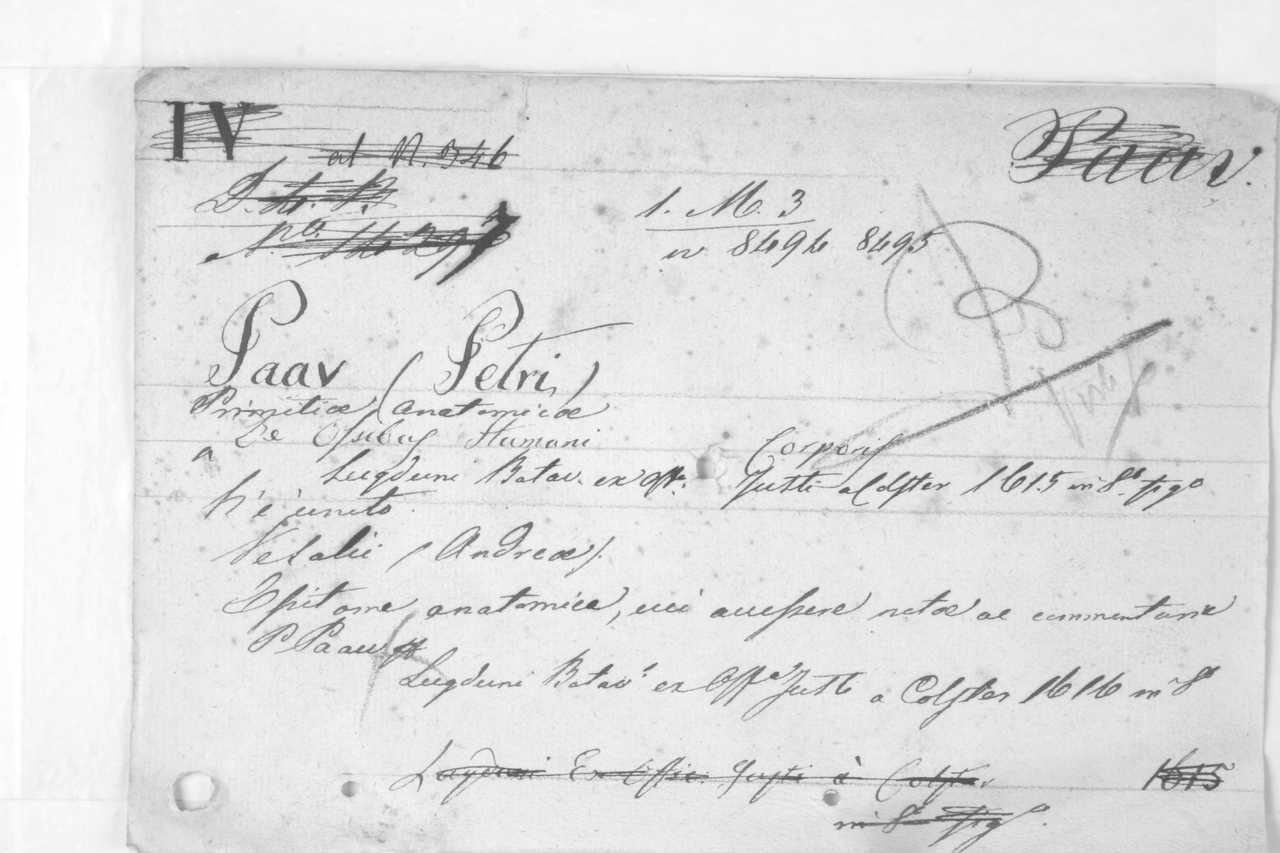 IV
al N. 346
Paav.
1. M. 3
n 8494 8495
B
Paav (Petri)
Primitiae Anatomicae
De Ossibus Humani Corporis
Lugduni Batav. ex off. Justi a Colster 1615 in 8° fig°
a
V'è unito
Vesalii (Andreae).
Epitome anatomica, cui accessere notae ac commentaria
P Paaw
Lugduni Batav. ex Off.a Justi a Colster 1616 in 8°
Lugduni Ex Offic. Justi à Colster 1615
in 8° fig°.